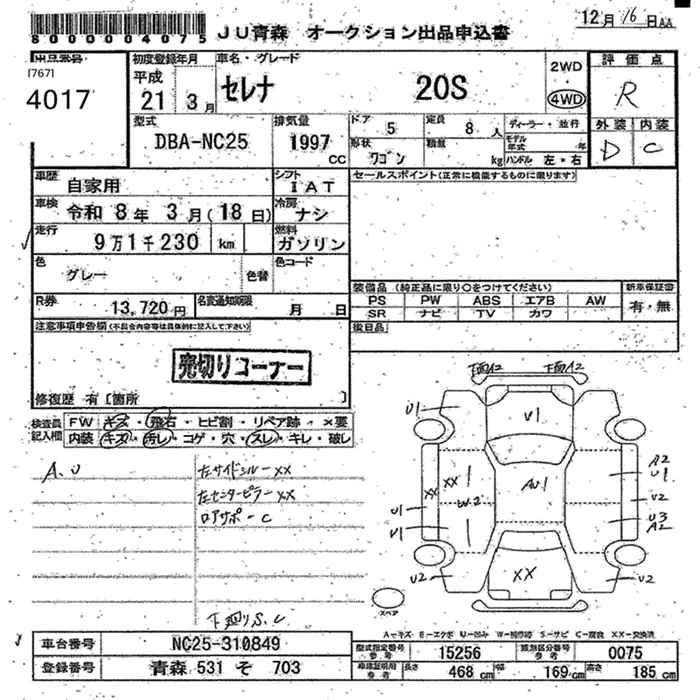 80000004075
JU青森 オークション出品申込書
12月16日AA
出品番号
[767]
4017
初度登録年月
平成
21 3月
車名・グレード
セレナ 20S
2WD
4WD
評価点
R
外装 内装
D C
型式
DBA-NC25
排気量
1997
CC
ドア 5
定員 8人
形状 ワゴン
積載 kg
ディーラー・並行
モデル年式 年
ハンドル 左・右
車歴
自家用
シフト
IAT
セールスポイント(正常に機能するものに限ります)
車検 令和 8年 3月(18日)
冷房
ナシ
走行
9万1千230 km
燃料
ガソリン
色
グレー
色替
色コード
装備品 (純正品に限り○をつけてください)
新車保証書
PS PW ABS エアB AW
SR ナビ TV カワ
有・無
R券
13,720円
名変通知期限
月 日
後日品
注意事項申告欄(不具合内容等は具体的に記入して下さい)
売切りコーナー
修復歴 有 [箇所 ]
検査員記入欄
FW キズ・飛石・ヒビ割・リペア跡・×要
内装 キズ・汚レ・コゲ・穴・スレ・キレ・破レ
A.U
左サイドシルーXX
左センターピラーXX
ロアサポーC
下廻りS.C
下面A2 下面A2
U1
U1
A2
U1
XX
XX
AU1
W2
U1
U1
U2
U3
A2
U2
XX
U2
スペア
A-キズ E-エクボ U-凹み W-補修跡 S-サビ C-腐食 XX-交換済
車台番号 NC25-310849
登録番号 青森 531 そ 703
型式指定番号
参考
15256
類別区分番号
参考
0075
車庫証明用
参考
長さ 468 cm 幅 169 cm 高さ 185 cm